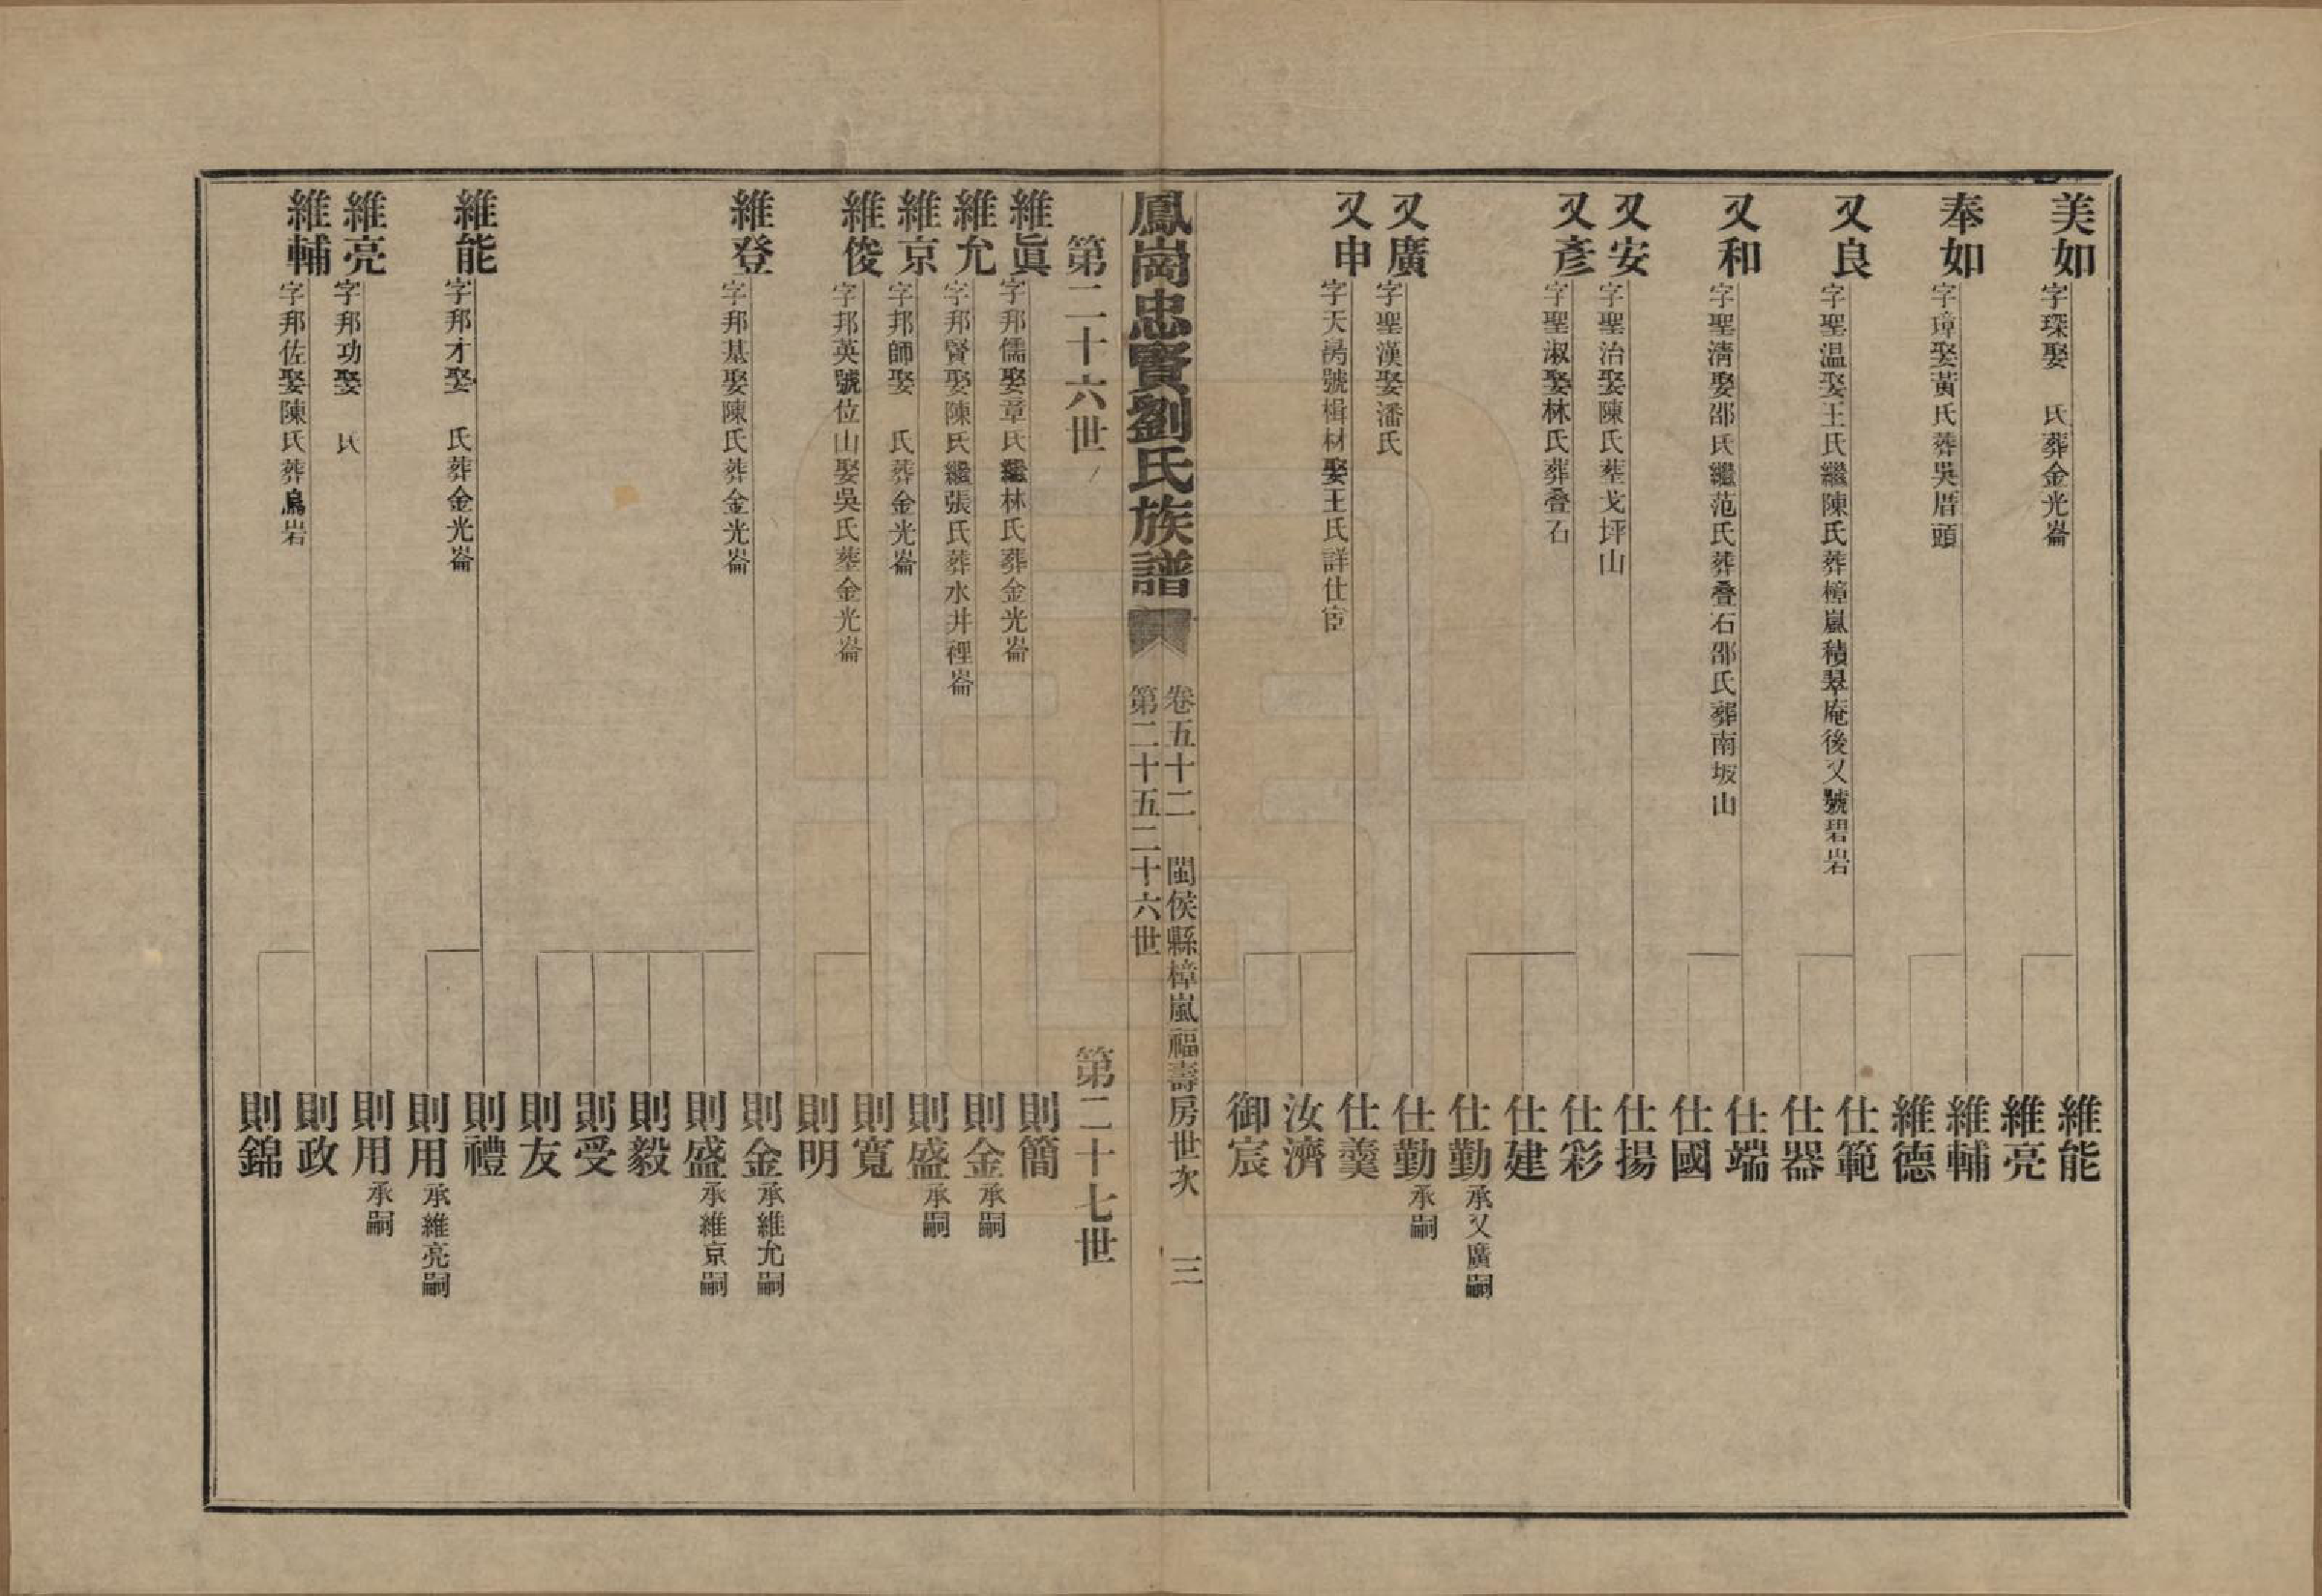 美如 字琛娶　氏葬金光崙
維能
維亮
奉如 字璋娶黃氏葬吳厝頭
維輔
維德
又良 字聖温娶王氏繼陳氏葬樟嵐積翠庵後又號碧岩
仕範
仕器
又和 字聖淸娶邵氏繼范氏葬叠石邵氏葬南坂山
仕端
仕國
又安 字聖治娶陳氏葬戈坪山
仕揚
又彥 字聖淑娶林氏葬叠石
仕彩
仕建
仕勤 承又廣嗣
又廣 字聖漢娶潘氏
仕勤 承嗣
又申 字天錫號楫材娶王氏詳仕宦
仕羹
汝濟
御宸
鳳崗忠賢劉氏族譜
卷五十二　閩侯縣樟嵐福壽房世次　三
第二十五二十六世
第二十六世
第二十七世
維眞 字邦儒娶章氏繼林氏葬金光崙
則簡
維允 字邦賢娶陳氏繼張氏葬水井裡崙
則金 承嗣
維京 字邦師娶　氏葬金光崙
則盛 承嗣
維俊 字邦英號位山娶吳氏葬金光崙
則寬
則明
維登 字邦基娶陳氏葬金光崙
則金 承維允嗣
則盛 承維京嗣
則毅
則受
則友
維能 字邦才娶　氏葬金光崙
則禮
則用 承維亮嗣
維亮 字邦功娶　氏
則用 承嗣
維輔 字邦佐娶陳氏葬烏岩
則政
則錦